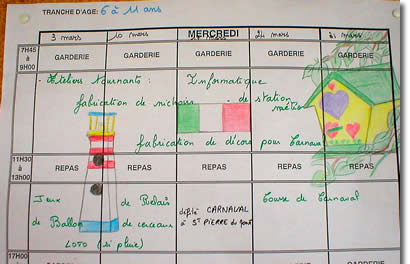 TRANCHE D'AGE: 6 à 11 ans
3 mars 10 mars MERCREDI 24 mars 31 mars
7H45 à 9H00 GARDERIE GARDERIE GARDERIE GARDERIE GARDERIE
Ateliers tournants : Informatique
fabrication de nichoirs - de station météo
fabrication de décors pour Carnaval
11H30 à 13h00 REPAS REPAS REPAS REPAS REPAS
Jeux de Relais défilé CARNAVAL Course de Carnaval
de Ballon de cerceaux à St PIERRE du
LOTO (si pluie)
17H00 GARDERIE GARDERIE GARDERIE GARDERIE GARDERIE